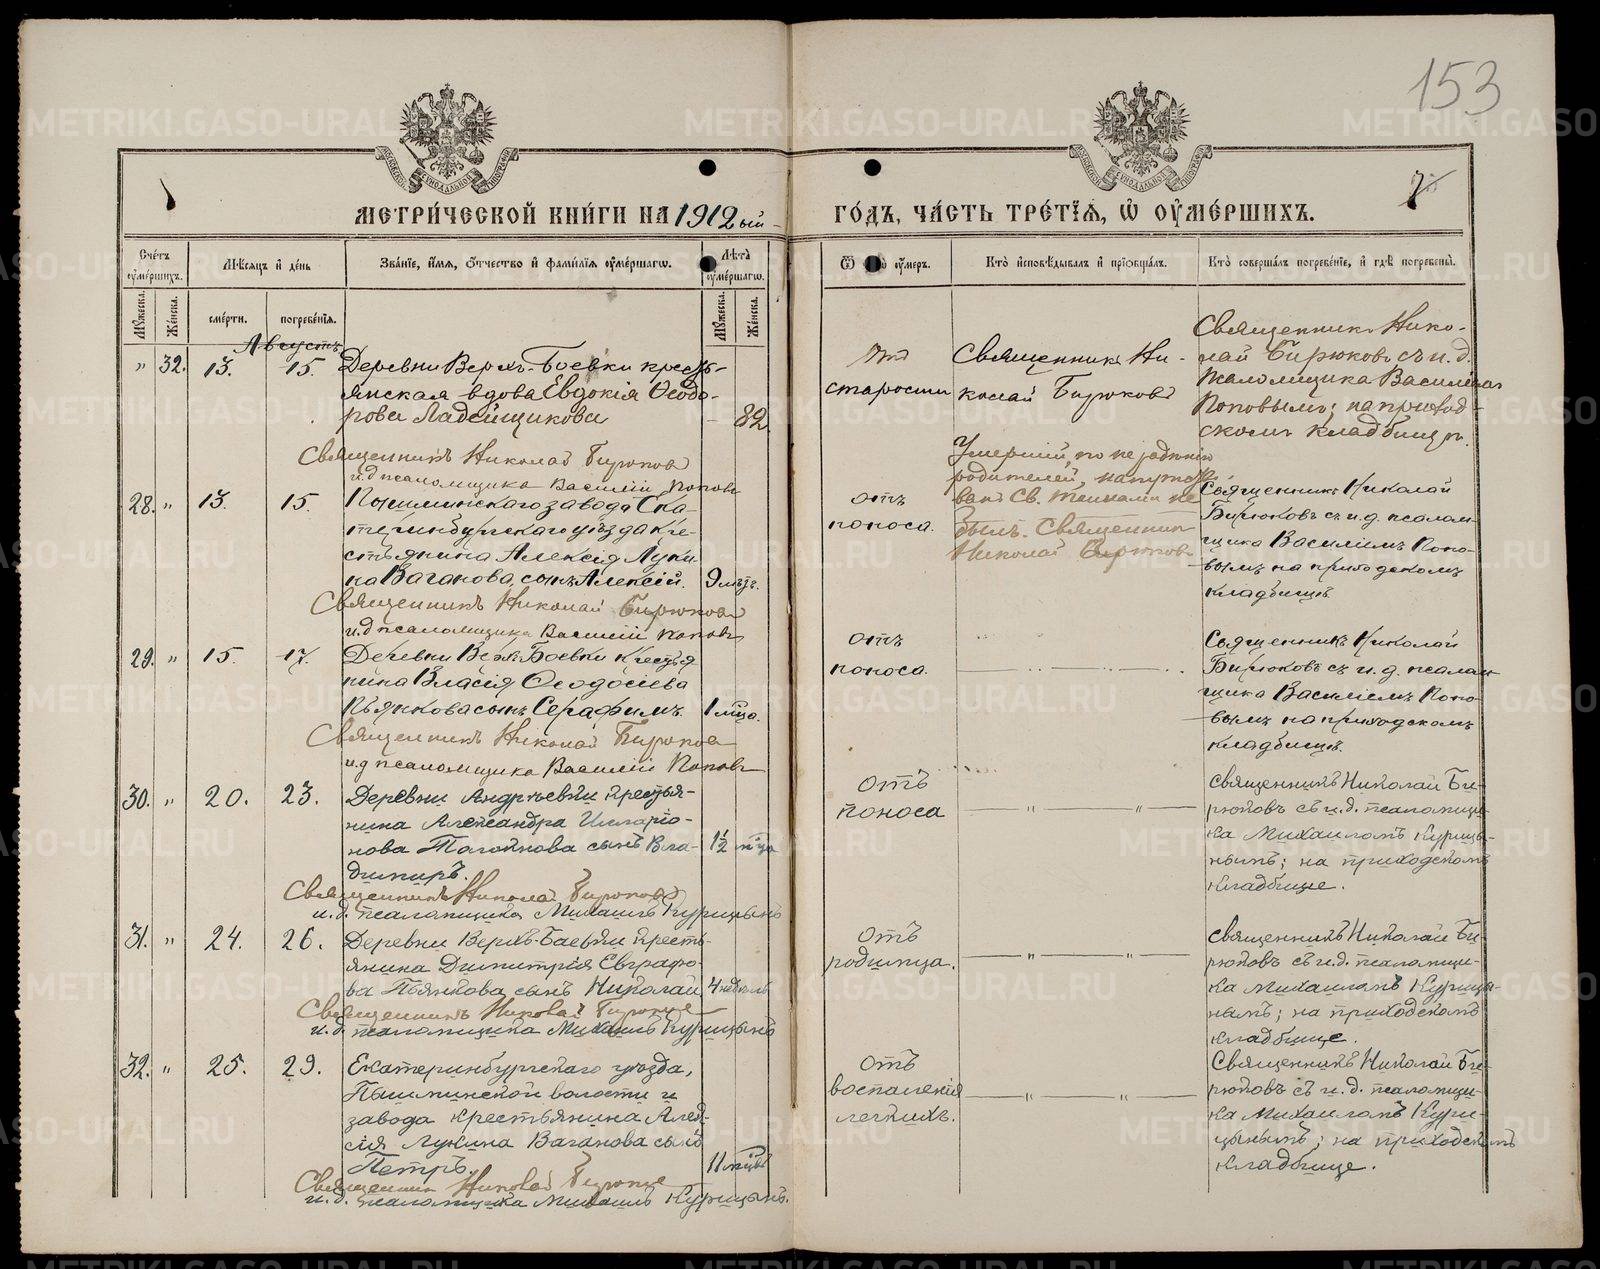 153
7
МЕТРИ́ЧЕСКОЙ КНИ́ГИ НА 1912ый
ГО́ДЪ, ЧА́СТЬ ТРЕ́ТІѦ, Ѽ ОУ҆МЕ́РШИХЪ.
Сче́тъ оу҆ме́ршихъ.
Мꙋ́жеска.
Же́нска.
Мѣ́сѧцъ и҆ де́нь
сме́рти.
погребе́нїѧ.
Зва́нїе, и҆́мѧ, ѻ҆́тчество и҆ фами́лїѧ оу҆ме́ршагѡ.
Лѣ́та оу҆ме́ршагѡ.
Мꙋ́жеска.
Же́нска.
оу҆́меръ.
Кто̀ и҆сповѣ́дывалъ и҆ прїѡбща́лъ.
Кто̀ соверша́лъ погребе́нїе, и҆ гдѣ̀ погребены̀.
Августъ
" 32. 13. 15. Деревни Верхъ-Боевки кресть-
янская вдова Евдокія Ѳеодо-
рова Ладейщикова 82
Отъ
старости
Священникъ Ни-
колай Бирюковъ
Священникъ Нико-
лай Бирюковъ съ и. д.
псаломщика Василіемъ
Поповымъ; на приход-
скомъ кладбищѣ.
Священникъ Николай Бирюковъ
и.д псаломщика Василій Поповъ
28. " 13. 15. Пышминскаго завода Ека-
теринбургскаго уѣзда кре-
стьянина Алексія Луки-
на Ваганова, сынъ Алексій. 9 мѣц.
отъ
поноса.
Умершій, по нерадѣнію
родителей, напутство-
ванъ Св. Тайнами не
былъ. Священникъ
Николай Бирюковъ
Священникъ Николай
Бирюковъ съ и. д. псалом-
щика Василіемъ Попо-
вымъ на приходскомъ
кладбищѣ
Священникъ Николай Бирюковъ
и.д псаломщика Василій Поповъ
29. " 15. 17. Деревни Верхъ-Боевки крестья-
нина Власія Ѳеодосіева
Пьянкова сынъ Серафимъ. 1 мца.
отъ
поноса.
Священникъ Николай
Бирюковъ съ и. д. псалом-
щика Василіемъ Попо-
вымъ на приходскомъ
кладбищѣ.
Священникъ Николай Бирюковъ
и.д псаломщика Василій Поповъ
30. " 20. 23. Деревни Андреевки крестья-
нина Александра Илларіо-
нова сынъ Вла- 1½ мца
димиръ.
отъ
поноса
— " — " —
Священникъ Николай Би-
рюковъ съ и. д. псаломщи-
ка Михаиломъ Курицы-
нымъ; на приходскомъ
кладбище.
Священникъ Николай Бирюковъ
и. д. псаломщика Михаилъ Курицынъ
31. " 24. 26. Деревни Верхъ-Баевки кресть-
янина Димитрія Евграфо-
ва Пьянкова сынъ Николай, 4 недѣль
отъ
родимца.
— " — " —
Священникъ Николай Би-
рюковъ съ и. д. псаломщи-
ка Михаиломъ Курицы-
нымъ; на приходскомъ
кладбище.
Священникъ Николай Бирюковъ
и. д. псаломщика Михаилъ Курицынъ
32. " 25. 29. Екатеринбургскаго уѣзда,
Пышминской волости и
завода крестьянина Алек-
сія Лукина Ваганова сынъ
Петръ. 11 мцевъ
отъ
воспаленія
легкихъ.
— " — " —
Священникъ Николай Би-
рюковъ съ и. д. псаломщи-
ка Михаиломъ Кури-
цынымъ; на приходскомъ
кладбище.
Священникъ Николай Бирюковъ
и. д. псаломщика Михаилъ Курицынъ.
METRIKI.GASO-URAL.RU